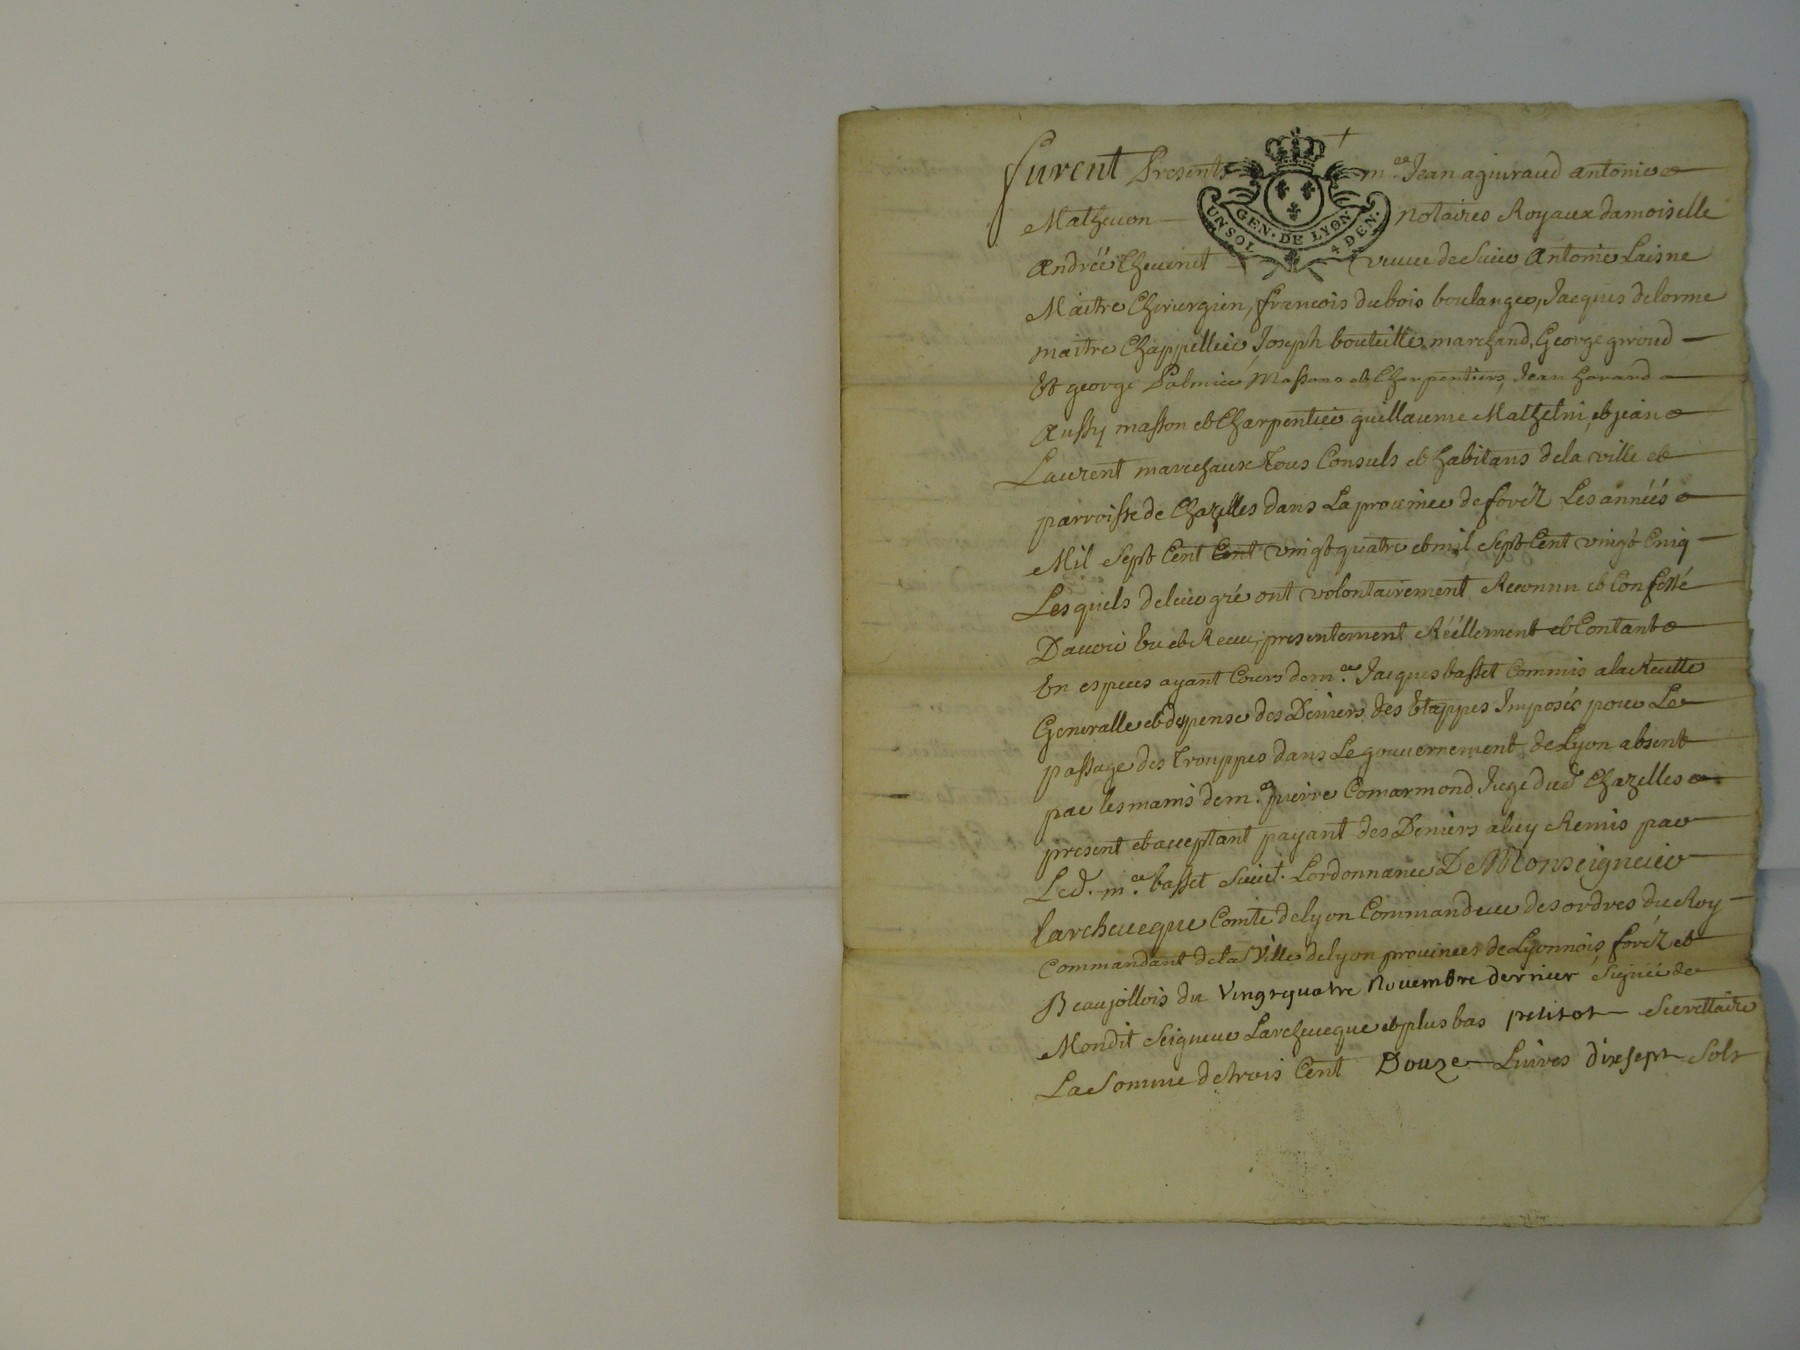 furent Presents m.re Jean aguiraud antoine
GEN. DE LYON
UN SOL 4 DEN.
Matheuon notaires Royaux damoiselle
andrée Theuenet veuue de Sieur Antoine Laisne
Maitre Chirurgien, francois dubois boulanger, Jacques delorme
maitre Chappellier Joseph bouteille marchand, George giroud
Et george Palmier Massons et Charpentiers, Jean honard
Aussy masson et Charpentier guillaume Mathelin, et jean
Laurent marechaux Tous Consuls et habitans dela ville et
parroisse de Chazelles dans La prouince de forêz Les années
Mil Sept Cent Cent vingt quatre et mil Sept Cent vingt Cinq
Lesquels deleur gré ont volontairement Reconnu et Confessé
Dauoir Eu et Receu, presentement Réellement et Contant
En especes ayant Cours de m.re Jacques basset Commis a la Recette
Generalle et depense des Deniers des Etappes Imposés pour Le
passage des Trouppes dans Le gouuernement de Lyon absent
par les mains de m.re pierre Comarmond Juge dud. Chazelles
present et acceptant payant des Deniers a luy Remis par
Led. m.re basset Suiut. Lordonnance De Monseigneur
larcheueque Comte de lyon Commandeur des ordres du Roy
Commandant dela Ville de lyon prouinces de Lyonnois forêz et
Beaujollois du Vingt quatre Nouembre dernier Signée de
Mondit Seigneur Larcheueque et plus bas petitot Secrettaire
La Somme de trois Cent Douze Liures dix sept Sols